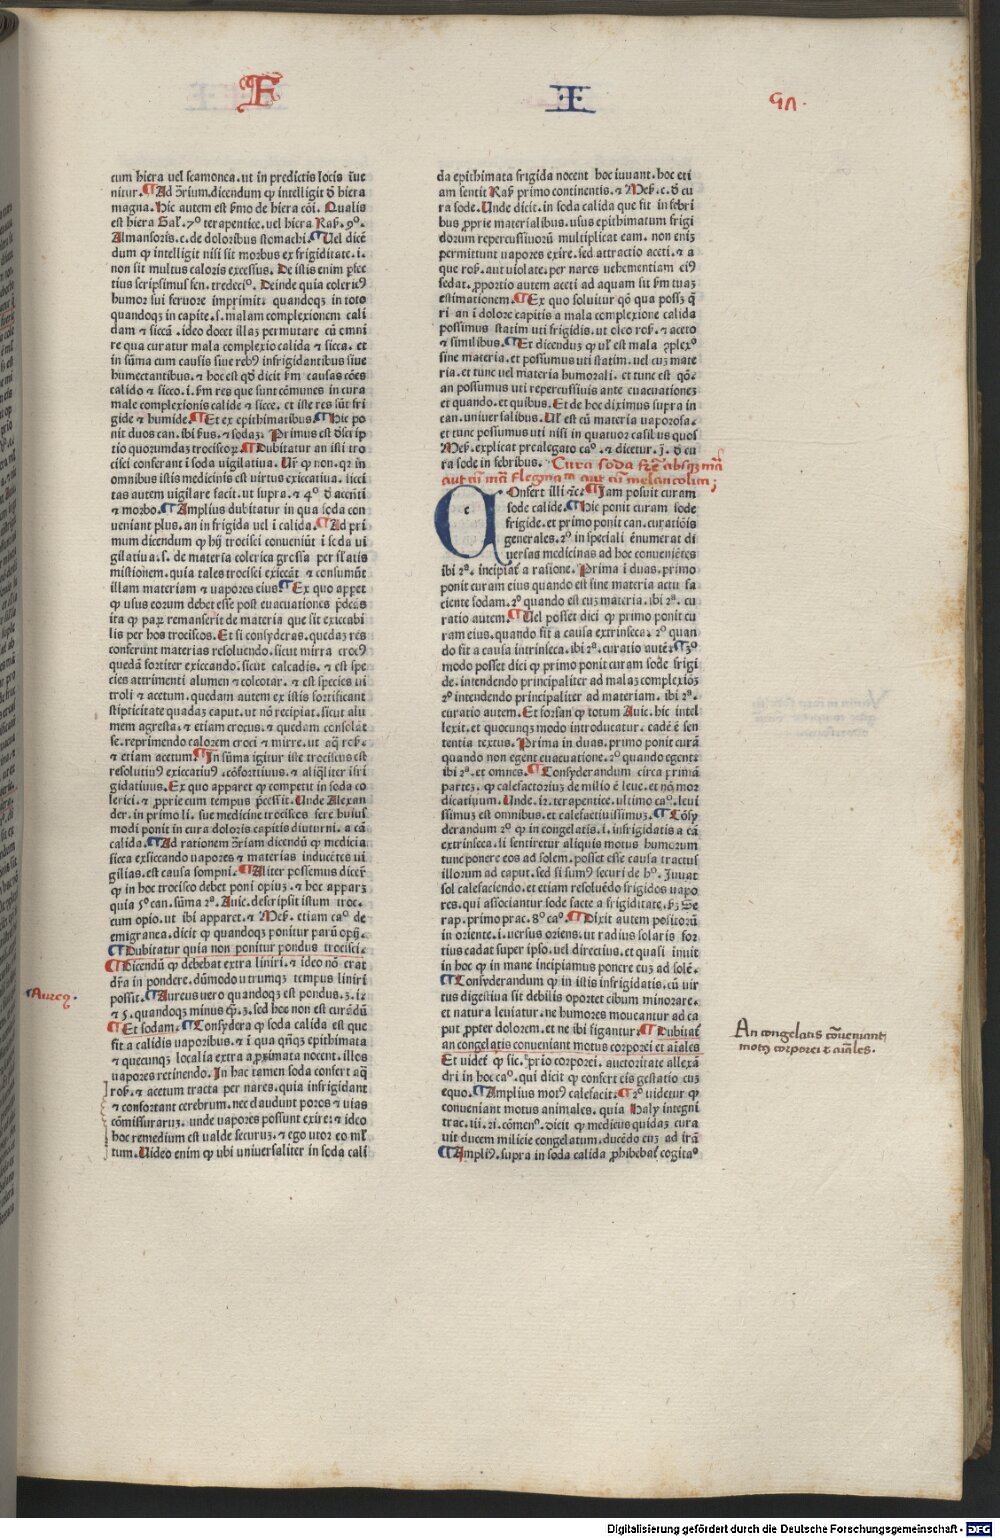 F I 91.
cum hiera uel scamonea. ut in predictis locis īue
nitur. ¶Ad ꝯ̄rium. dicendum ꝙ intelligit ď hiera
magna. Hic autem est ẜmo de hiera cōi. Qualis
est hiera Gal̕. 7º terapentice. uel hiera Rasͥ. 9º.
Almansoris. c. de doloribus stomachi. ¶Uel dicē
dum ꝙ intelligit nisi sit morbus ex frigiditate. i.
non sit multus caloris excessus. De istis enim
tius scripsimus fen. tredeciº. Deinde quia colericꝰ
humor sui feruore imprimit quandoqꝫ in toto
quandoqꝫ in capite. s. malam complexionem cali
dam ⁊ siccā. ideo docet illaꝫ permutare cū omni
re qua curatur mala complexio calida ⁊ sicca. et
in sūma cum causis siue rebꝰ infrigidantibus siue
humectantibus. ⁊ hoc est qď dicit ẜm causas cōes
calido ⁊ sicco. i. ẜm res que sunt cōmunes in cura
male complexionis calide ⁊ sicce. et iste res sūt fri
gide ⁊ humide. ¶Et ex epithimatibus. ¶Hic po
nit duos can. ibi ẜus. ⁊ sodaꝫ. Primus est ďscrip
tio quorumdaꝫ trociscoꝝ. ¶Dubitatur an isti tro
cisci conferant ī soda vigilatiua. Uř ꝙ non. qꝛ in
omnibus istis medicinis est virtus exiccatiua. sicci
tas autem uigilare facit. ut supra. ⁊ 4º ď accēti
⁊ morbo. ¶Amplius dubitatur in qua soda con
ueniant plus. an in frigida uel ī calida. ¶Ad pri
mum dicendum ꝙ hij trocisci conueniūt ī soda ui
gilatiua. s. de materia colerica grossa per
mistionem. quia tales trocisci exiccāt ⁊ consumūt
illam materiam ⁊ uapores eius. ¶Ex quo appet
ꝙ usus eorum debet esse post euacuationes p̄dcās
ita ꝙ paꝝ remanserit de materia que sit exiccabi
lis per hos trociscos. Et si consyderas. quedaꝫ res
conferunt materias resoluendo. sicut mirra crocꝰ
quedā fortiter exiccando. sicut calcadis. ⁊ est spe
cies attrimenti alumen ⁊ colcotar. ⁊ est species ui
troli ⁊ acetum. quedam autem ex istis fortificant
stipticitate quadaꝫ caput. ut nō recipiat. sicut alu
mem agresta. ⁊ etiam crocus. ⁊ quedam consolāt̕
se. reprimendo calorem croci ⁊ mirre. ut aq̄ rosͥ.
⁊ etiam acetum. ¶In sūma igitur iste trociscus est
resolutiuꝰ exiccatiuꝰ. cōfortatiuus. ⁊ aliqͣliter īfri
gidatiuus. Ex quo apparet ꝙ competit in soda co
lerici. ⁊ ꝓprie cum tempus p̄cessit. Unde Alexan
der. in primo li. sue medicine trociscos fere huius
modi ponit in cura doloris capitis diuturni. a cā
calida. ¶Ad rationem ꝯ̄riam dicendū ꝙ medicīa
sicca exsiccando uapores ⁊ materias inducētes ui
gilias. est causa sompni. ¶Aliter possemus dicer̄
ꝙ in hoc trocisco debet poni opiuꝫ. ⁊ hoc apparꝫ
quia 5º can. sūma 2ª. Auic. descripsit istum troc.
cum opio. ut ibi apparet. ⁊ Mesͥ. etiam caº de
emigranea. dicit ꝙ quandoqꝫ ponitur parū opij.
¶Dubitatur quia non ponitur pondus trocisci.
¶Dicendū ꝙ debebat extra liniri. ⁊ ideo nō erat
dr̄a in pondere. dūmodo utrumqꝫ tempus liniri
possit. ¶Aureus uero quandoqꝫ est pondus. ʒ. iᵡ
⁊ 5. quandoqꝫ minus qͣꝫ. ʒ. sed hoc non est curādū
¶Et sodam. ¶Consydera ꝙ soda calida est que
fit a calidis uaporibus. ⁊ ī qua qn̄qꝫ epithimata
⁊ quecunqꝫ localia extra aꝓximata nocent. illos
uapores retinendo. In hac tamen soda confert aq̄
rosͥ. ⁊ acetum tracta per nares. quia infrigidant
⁊ confortant cerebrum. nec claudunt poros ⁊ uias
cōmissuraruꝫ. unde vapores possunt exire: ⁊ ideo
hoc remedium est ualde securuꝫ. ⁊ ego utor eo ml̕
tum. Uideo enim ꝙ ubi uniuersaliter in soda cali
Aureꝰ.
da epithimata frigida nocent hoc iuuant. hoc eti
am sentit Rasͥ primo continentis. ⁊ Mesͥ. c. ď cu
ra sode. Unde dicit. in soda calida que fit in febri
bus ꝓprie materialibus. usus epithimatum frigi
dorum repercussiuorū multiplicat eam. non eniꝫ
permittunt uapores exire. sed attractio aceti. ⁊ a
que rosͥ. aut uiolate. per nares uehementiam eiꝰ
sedat. ꝓportio autem aceti ad aquam sit ẜm tuaꝫ
estimationem. ¶Ex quo soluitur qō qua possꝫ q̄
ri an ī dolore capitis a mala complexione calida
possimus statim uti frigidis. ut oleo rosͥ. ⁊ aceto
⁊ similibus. ¶Et dicenduꝫ ꝙ ul̕ est mala ꝯplexº
sine materia. et possumus uti statim. uel cuꝫ mate
ria. et tunc uel materia humorali. et tunc est qō.
an possumus uti repercussiuis ante euacuationeꝫ
et quando. et quibus. Et de hoc diximus supra in
can. uniuersalibus. Ul̕ est cū materia uaporosa.
et tunc possumus uti nisi in quatuor casibus quos
Mesͥ. explicat preallegato caº. ⁊ dicetur. j. ď cu
ra sode in febribus. Cura sode frē absqꝫ mā
aut cū mā flegmaᵐ aut cū melancolia;
COnfert illi ⁊c̄. ¶Jam posuit curam
sode calide. ¶Hic ponit curam sode
frigide. et primo ponit can. curatiōis
generales. 2º in speciali enumerat di
uersas medicinas ad hoc conueniētes
ibi 2ª. incipiat̕ a rasione. Prima ī duas. primo
ponit curam eius quando est sine materia actu fa
ciente sodam. 2º quando est cuꝫ materia. ibi 2ª. cu
ratio autem. ¶Uel posset dici ꝙ primo ponit cu
ram eius. quando fit a causa extrinseca. 2º quan
do fit a causa intrinseca. ibi 2ª. curatio autē. ¶3º
modo posset dici ꝙ primo ponit curam sode frigi
de. intendendo principaliter ad malaꝫ complexiōꝫ
2º intendendo principaliter ad materiam. ibi 2ª.
curatio autem. Et forsan ꝙ totum Auic. hic intel
lexit. et quocunqꝫ modo introducatur. eadē ē sen
tentia textus. Prima in duas. primo ponit curā
quando non egent euacuatione. 2º quando egent
ibi 2ª. et omnes. ¶Consyderandum circa primā
parteꝫ. ꝙ calefactorius de milio ē leue. et nō mor
dicatiuum. Unde. 12. terapentice. ultimo caº. leui
ssimuꝫ est omnibus. et calefactiuissimuꝫ. ¶Cōsy
derandum 2º ꝙ in congelatis. i. infrigidatis a cā
extrinseca. si sentiretur aliquis motus humorum
tunc ponere eos ad solem. posset esse causa tractus
illorum ad caput. sed si sumꝰ securi de hº. Juuat
sol calefaciendo. et etiam resoluēdo frigidos uapo
res. qui associantur sode facte a frigiditate. ẜꝫ Se
rap. primo prac. 8º caº. ¶Dixit autem positorū
in oriente. i. uersus oriens. ut radius solaris for
tius cadat super ipso. uel directius. et quasi inuit
in hoc ꝙ in mane incipiamus ponere cuꝫ ad solē.
¶Consyderandum ꝙ in istis infrigidatis. cū uir
tus digestiua sit debilis oportet cibum minorare.
et natura leuiatur. ne humores moueantur ad ca
put ꝓpter dolorem. et ne ibi figantur. ¶Dubitat̕
an congelatis conueniant motus corporei et aīales
Et uidet̕ ꝙ sic. prio corporei. auctoritate allexā
dri in hoc caº. qui dicit ꝙ confert eis gestatio cuꝫ
equo. ¶Amplius motꝰ calefacit. ¶2º uidetur ꝙ
conueniant motus animales. quia Haly integni
trac. iii. 21. cōmenº. dicit ꝙ medicus quidaꝫ cura
uit ducem milicie congelatum. ducēdo eum ad irā
¶Ampliꝰ. supra in soda calida ꝓhibebat̕ cogitaº
An congelatis cōueniant
motꝰ corporei ⁊ aīales.
Digitalisierung gefördert durch die Deutsche Forschungsgemeinschaft - DFG